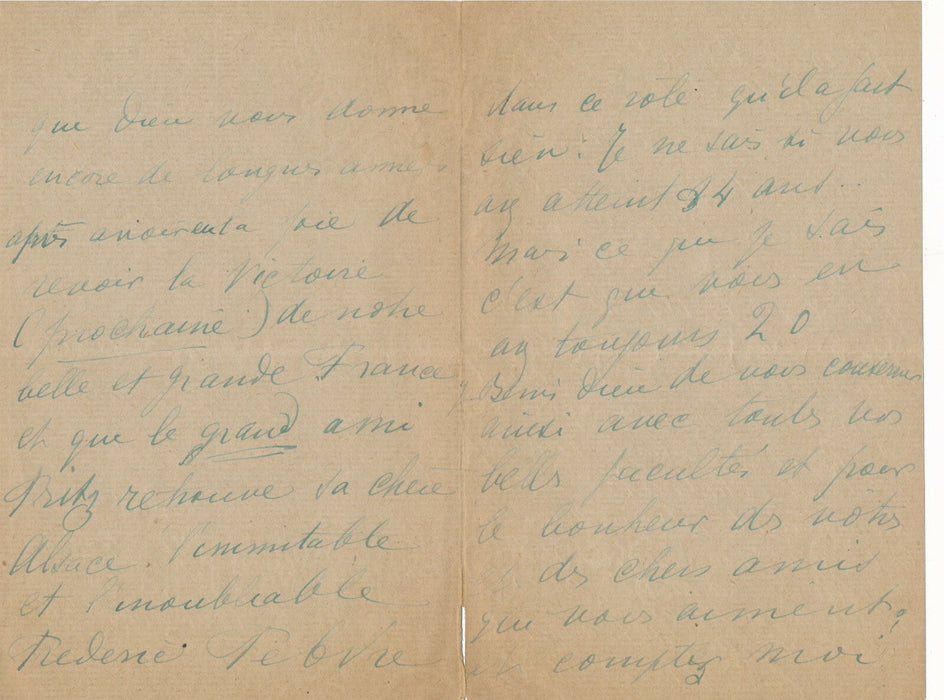 que Dieu vous donne
encore de longues années
après avoir eu la joie de
revoir la Victoire
(prochaine) de notre
belle et grande France
et que le grand ami
Fritz retrouve sa chère
Alsace. l'immitable
et l'inoubliable
Frederic Febvre
dans ce rôle qu'il a fait
sien! Je ne sais si vous
avez atteint 84 ans..
Mais ce que je sais
c'est que vous en
avez toujours 20
Beni Dieu de vous conserver
ainsi avec toutes vos
belles facultés et pour
le bonheur des vôtres
et des chers amis
qui vous aiment,
et comptez moi